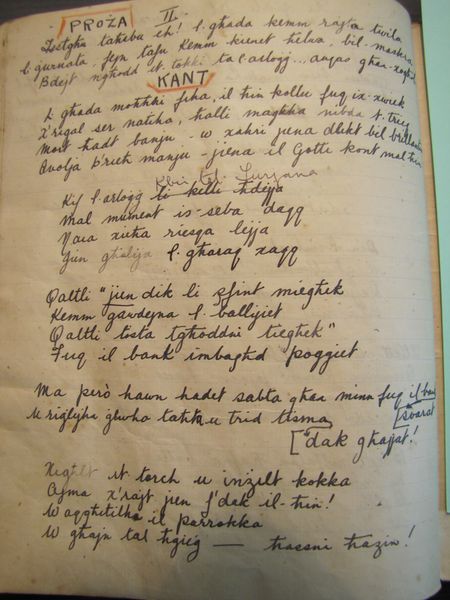 II.
PROŻA
Istgħu taħsbu ih! l. għada kemm rajta twila
l. ġurnata, fejn tafu kemm kienet ħelwa, bil-maskra
Bdejt ngħodd it-tokki ta l-arloġġ... aqas għax
KANT
L għada moħħi fiha, il ħin kollu fuq ix-xwiek
X'riġal ser natiha, ħalli magħha nibda t-triq
Mort ħadt banju - w xahri jiena dlikt bil brillantin
Avolja b'ruħ manju - jiena il Gotti kont mal ħin
Kbir tal-Furjana
Kif l-arloġġ li killi ħdejja
Mal mument is-seba daqq
Nara xiħa rieqsa lejja
Ġien għalija l. għaraq xaqq
Qaltli "jien dik li sfint miegħek
Kemm gawdejna l. ballijiet
Qaltli tosta tgħoddni tiegħek"
Fuq il bank imbagħad poġġiet
Ma però hawn ħadet sabta għax minn fuq il
U riġlejha ġewwa taħtu trid tisma
["dak għajjat!
Xegħelt it-torch u inżilt kokka
Ajma x'rajt jien f'dak il-ħin!
W aqgħetilha il parrokka
W għajn tal ħġieġ — ħassni ħażin!